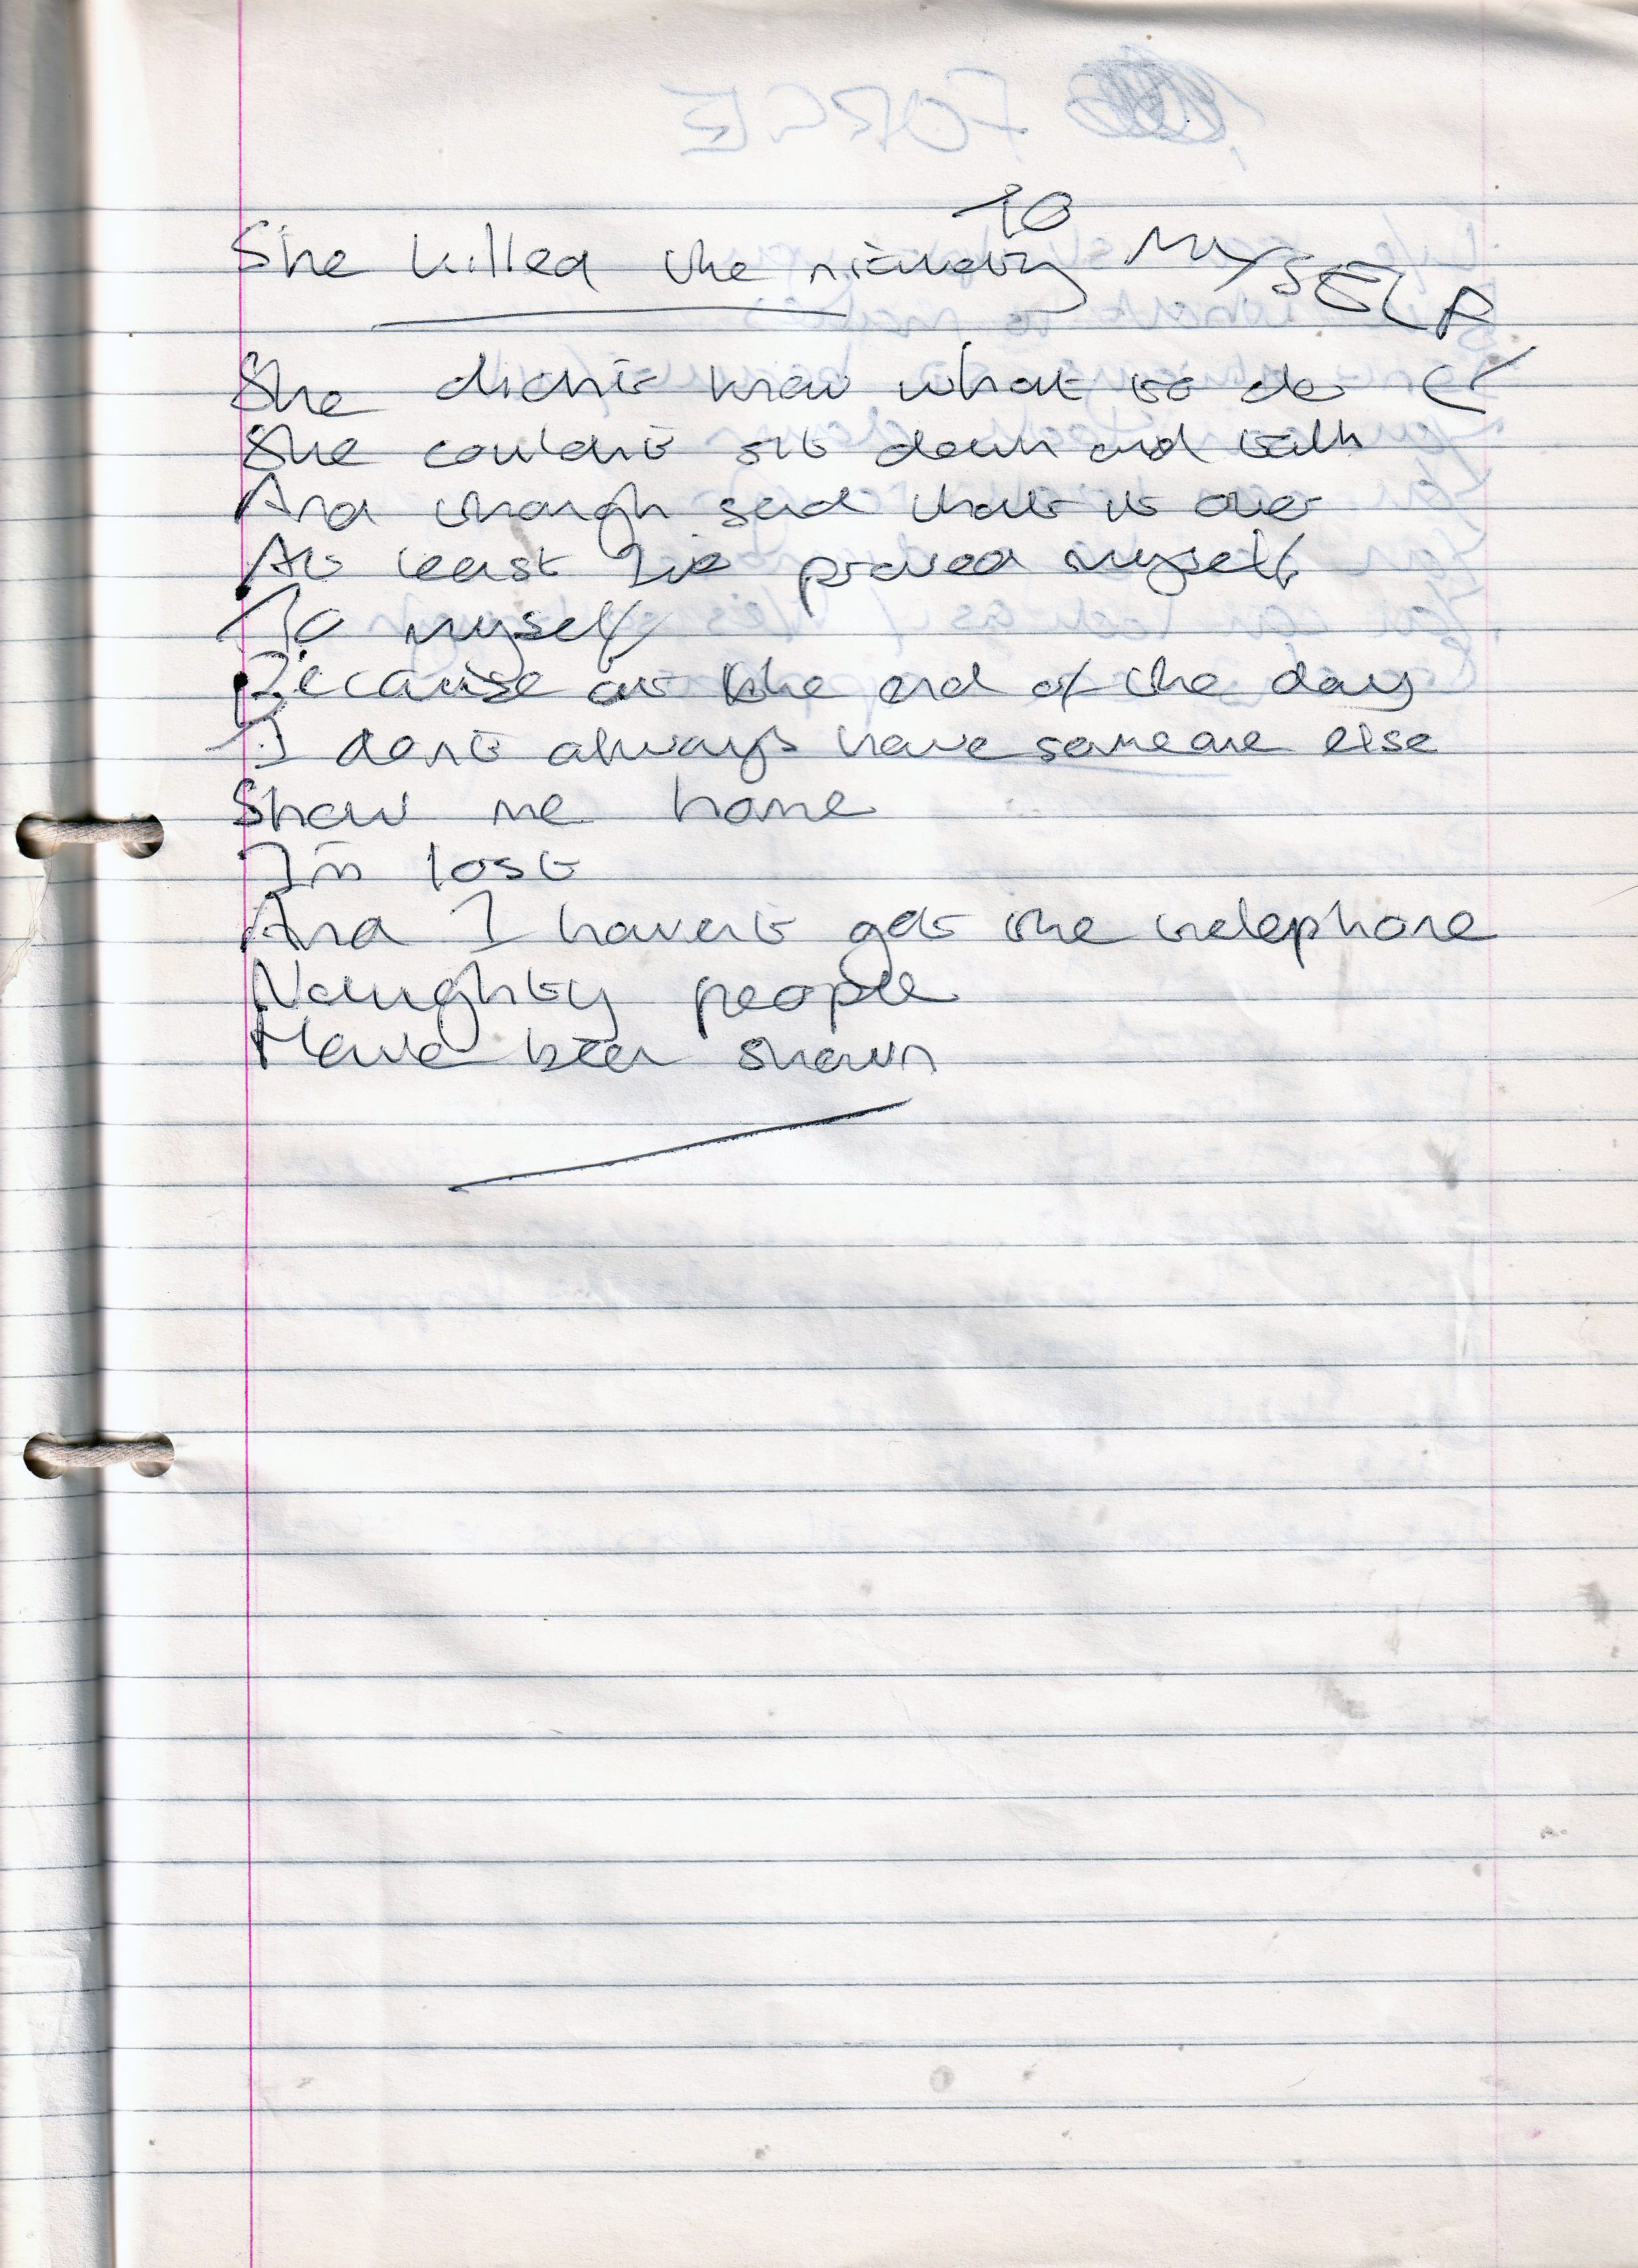 TO MYSELF
She killed the
She didn't know what to do
She couldn't sit down and talk
And though sad that its over
At least I've proved myself
To myself
Because at the end of the day
I don't always have someone else
Show me home
I'm lost
And I haven't got the telephone
Naughty people
Have been shown